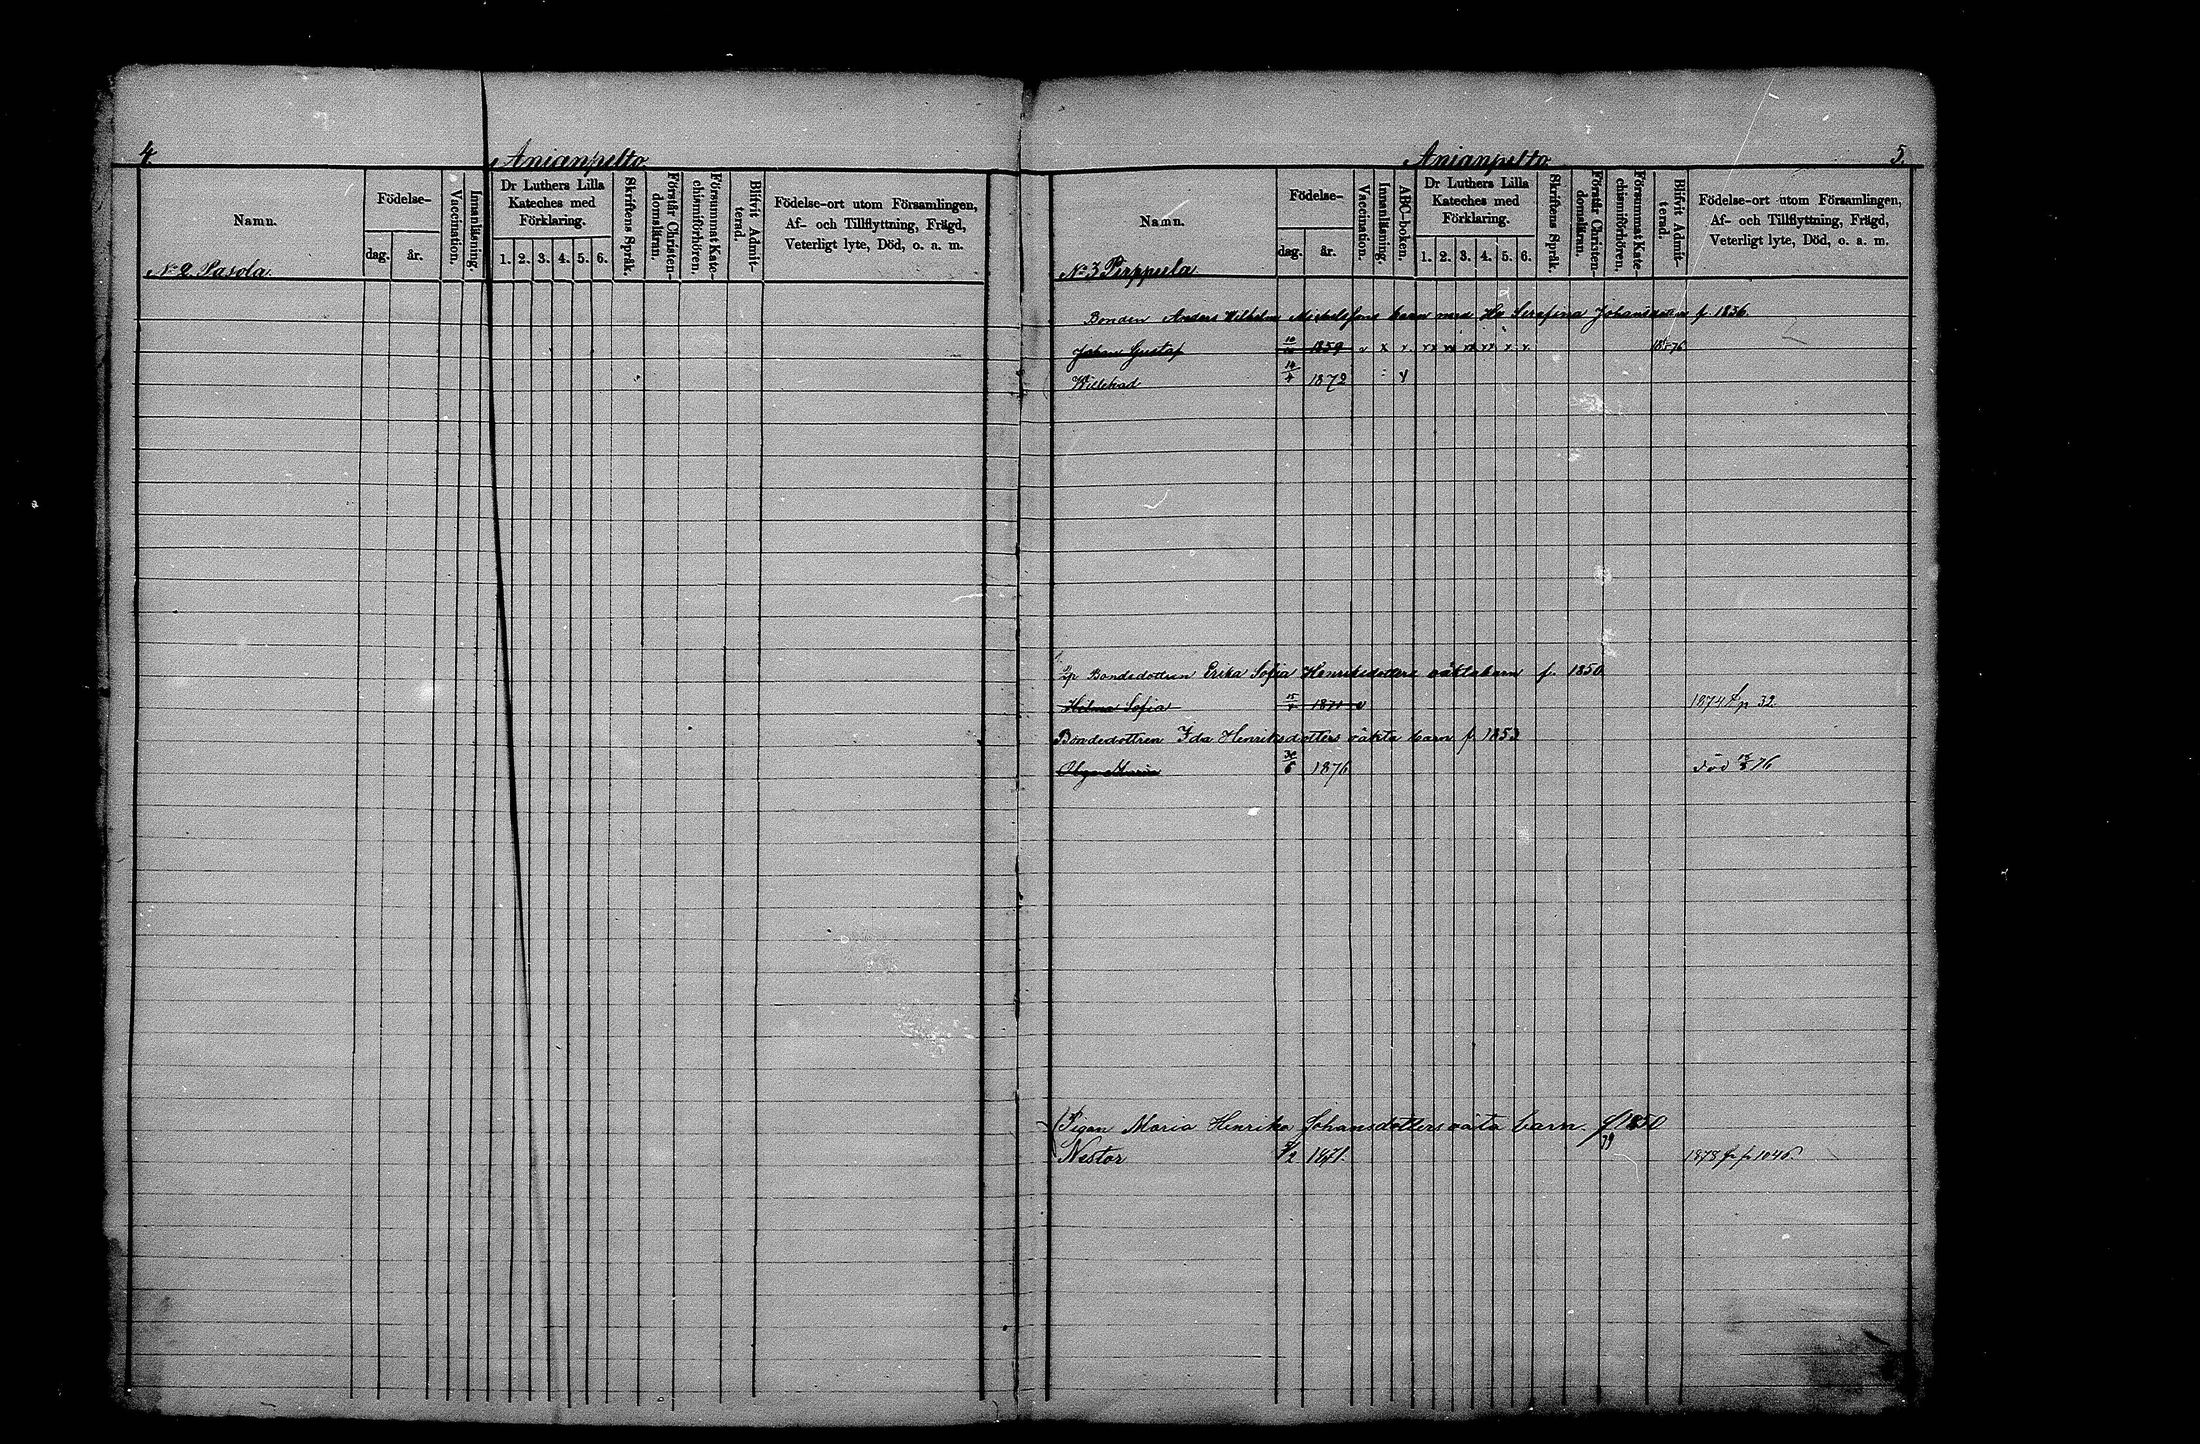 4.
Anianpelto
Namn.
Födelse-
dag.
år.
Vaccination.
Innanläsning.
Dr Luthers Lilla
Kateches med
Förklaring.
1. 2. 3. 4. 5. 6.
Skriftens Språk.
Förstår Christen-
domsläran.
Försummat Kate-
chismiförhören.
Blifvit Admit-
terad.
Födelse-ort utom Församlingen,
Af- och Tillflyttning, Frägd,
Veterligt lyte, Död, o. a. m.
No 2 Pasola.
Anianpelto
5.
Namn.
Födelse-
dag.
år.
Vaccination.
Innanläsning.
ABC-boken.
Dr Luthers Lilla
Kateches med
Förklaring.
1. 2. 3. 4. 5. 6.
Skriftens Språk.
Förstår Christen-
domsläran.
Försummat Kate-
chismiförhören.
Blifvit Admit-
terad.
Födelse-ort utom Församlingen,
Af- och Tillflyttning, Frägd,
Veterligt lyte, Död, o. a. m.
No 3 Pirppula
Bonden Anders Wilhelm Mickelssons barn med Hu Serafina Johansdotter f. 1836.
Johan Gustaf 1859 v x v
Willehad 1872
Bondedottren Erika Sofia Henriksdotters oäkta barn f. 1850
Hilma Sofia 1871 v 1874 p 32
Bondedottren Ida Henriksdotters oäkta barn f. 1853
Olga Maria 30/6 1876 död 76
Pigan Maria Henrika Johansdotters oäta barn. f 1850
Nestor 1871. 1878 fr p 1046.